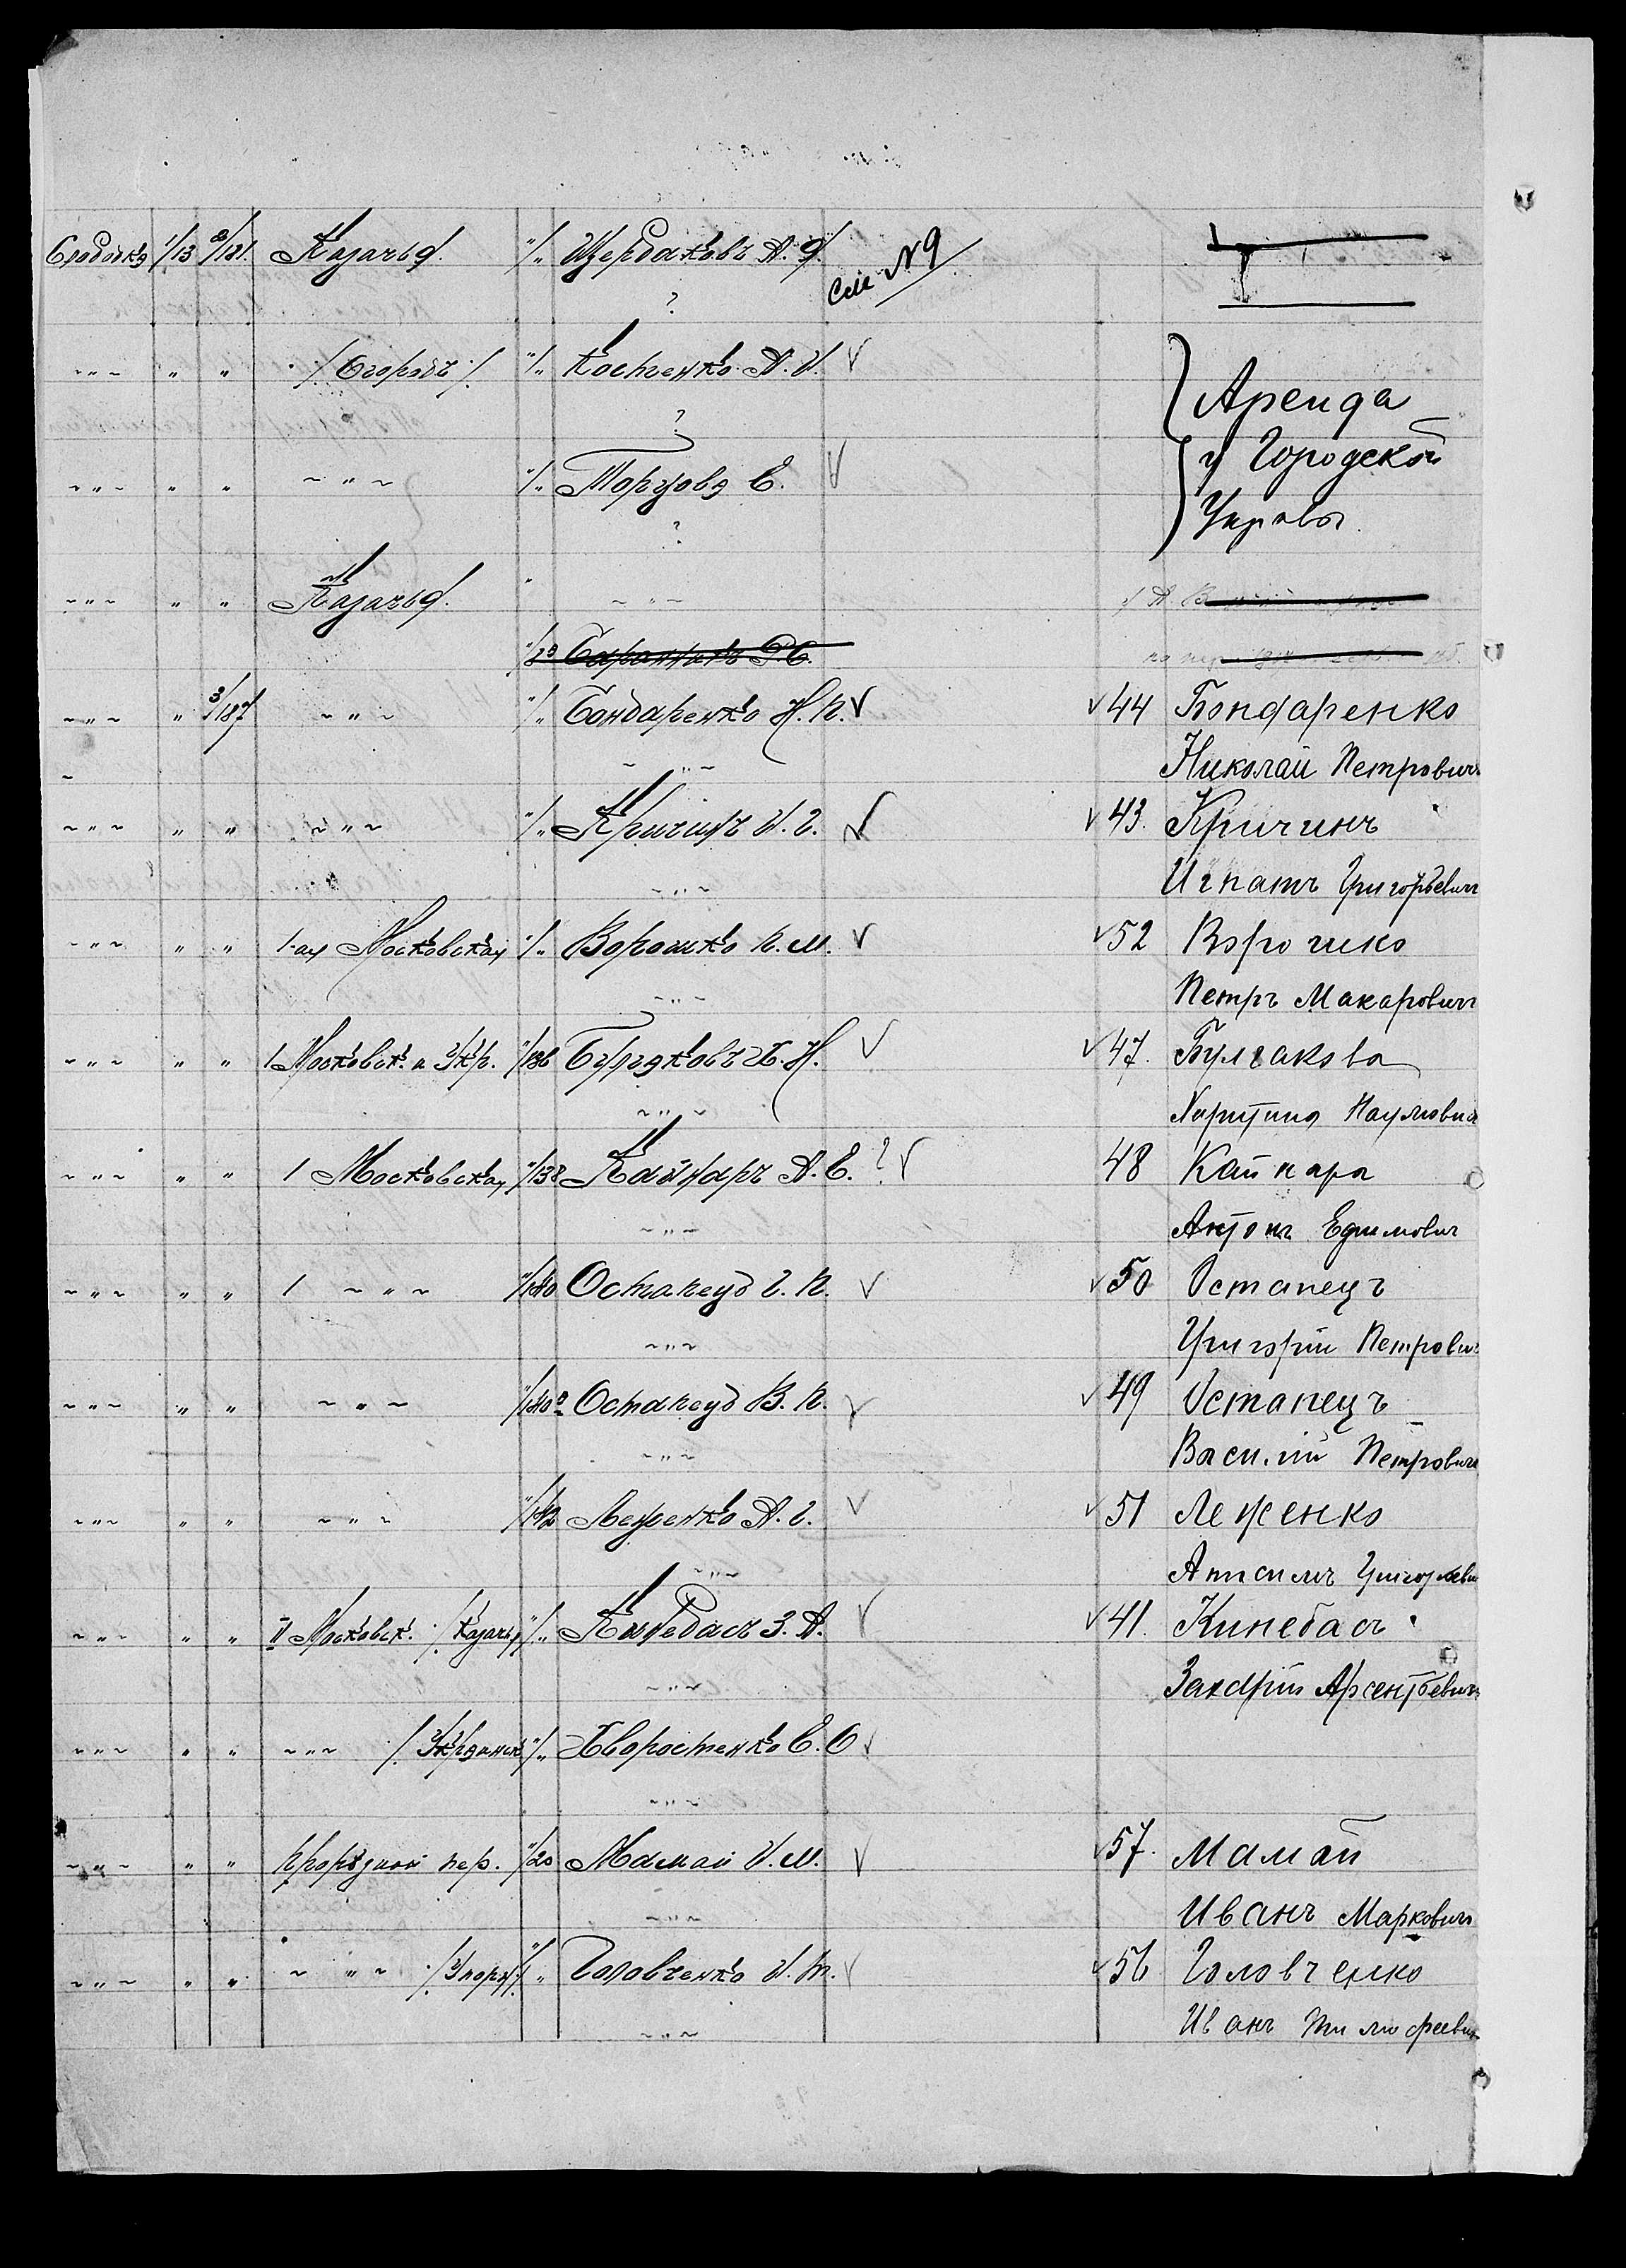 Слободка 1/13 2/181. Казачья. "/" Щербаковъ А. Я. См № 9
?
-"- " " /Огородъ/. "/" Костенко А. И. V Аренда
?
-"- " " -"- "/" Торцова Е. V у Городской
? Управы
-"- " " Казачья. " -"-
-"- " 3/187 -"- "/" Бондаренко Н. П. V V 44 Бондаренко
-"- Николай Петровичъ
-"- " " -"- "/" Кричинъ И. Г. V V 43. Кричинъ
-"- Игнатъ Григорьевичъ
-"- " " 1-ая Московская "/" Ворошко П. М. V V 52 Ворочико
-"- Петръ Макаровичъ
-"- " " 1 Московск. и Укр. "/136 Булгаковъ Х. Н. V V 47. Булгакова
-"- Харитина Наумовна
-"- " " 1 Московская "/138 Кайнаръ А. Е. ? V 48 Кайнара
-"- Антонъ Ефимовичъ
-"- " " 1 -"- "/140 Остапецъ Г. П. V V 50 Остапецъ
-"- Григорій Петровичъ
-"- " " -"- "/140а Остапецъ В. П. V V 49 Остапецъ
-"- Василій Петровичъ
-"- " " -"- "/142 Леженко А. Г. V V 51 Леженко
-"- Анисимъ Григорьевичъ
-"- " " II Московск. /Казачья/ "/" Кинебасъ З. А. V V 41. Кинебасъ
-"- Захарій Арсентьевичъ
-"- " " -"- /. "/" Хворостенко Е. О V
-"-
-"- " " Прорѣзной пер. "/20 Мамай И. М. V V 57. Мамай
-"- Иванъ Марковичъ
-"- " " -"- "/" Головченко И. Т. V V 56 Головченко
-"- Иванъ Тимофеевичъ